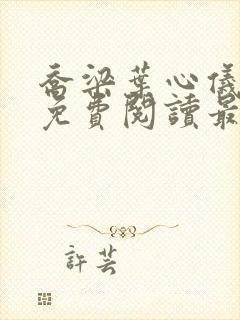 喬梁葉心儀
免費閱讀最
許芸